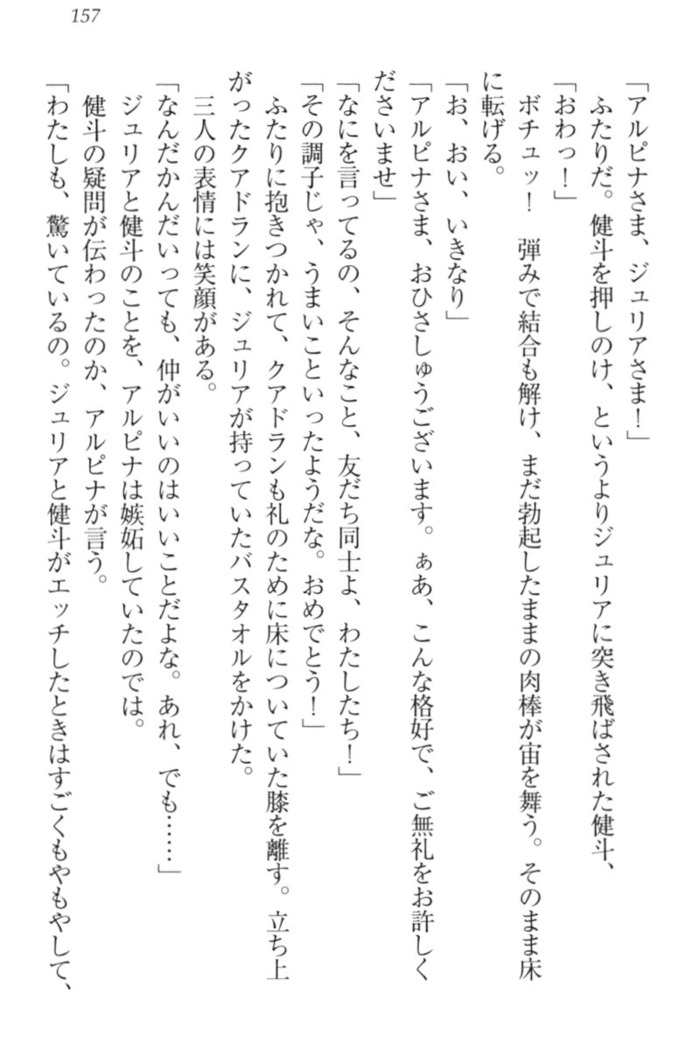 157
「アルピナさま、ジュリアさま！」
　ふたりだ。健斗を押しのけ、というよりジュリアに突き飛ばされた健斗、
「おわっ！」
　ボチュッ！　弾みで結合も解け、まだ勃起したままの肉棒が宙を舞う。そのまま床
に転げる。
「お、おい、いきなり」
「アルピナさま、おひさしゅうございます。ぁあ、こんな格好で、ご無礼をお許しく
ださいませ」
「なにを言ってるの、そんなこと、友だち同士よ、わたしたち！」
「その調子じゃ、うまいこといったようだな。おめでとう！」
　ふたりに抱きつかれて、クアドランも礼のために床についていた膝を離す。立ち上
がったクアドランに、ジュリアが持っていたバスタオルをかけた。
　三人の表情には笑顔がある。
「なんだかんだいっても、仲がいいのはいいことだよな。あれ、でも……」
　ジュリアと健斗のことを、アルピナは嫉妬していたのでは。
　健斗の疑問が伝わったのか、アルピナが言う。
「わたしも、驚いているの。ジュリアと健斗がエッチしたときはすごくもやもやして、